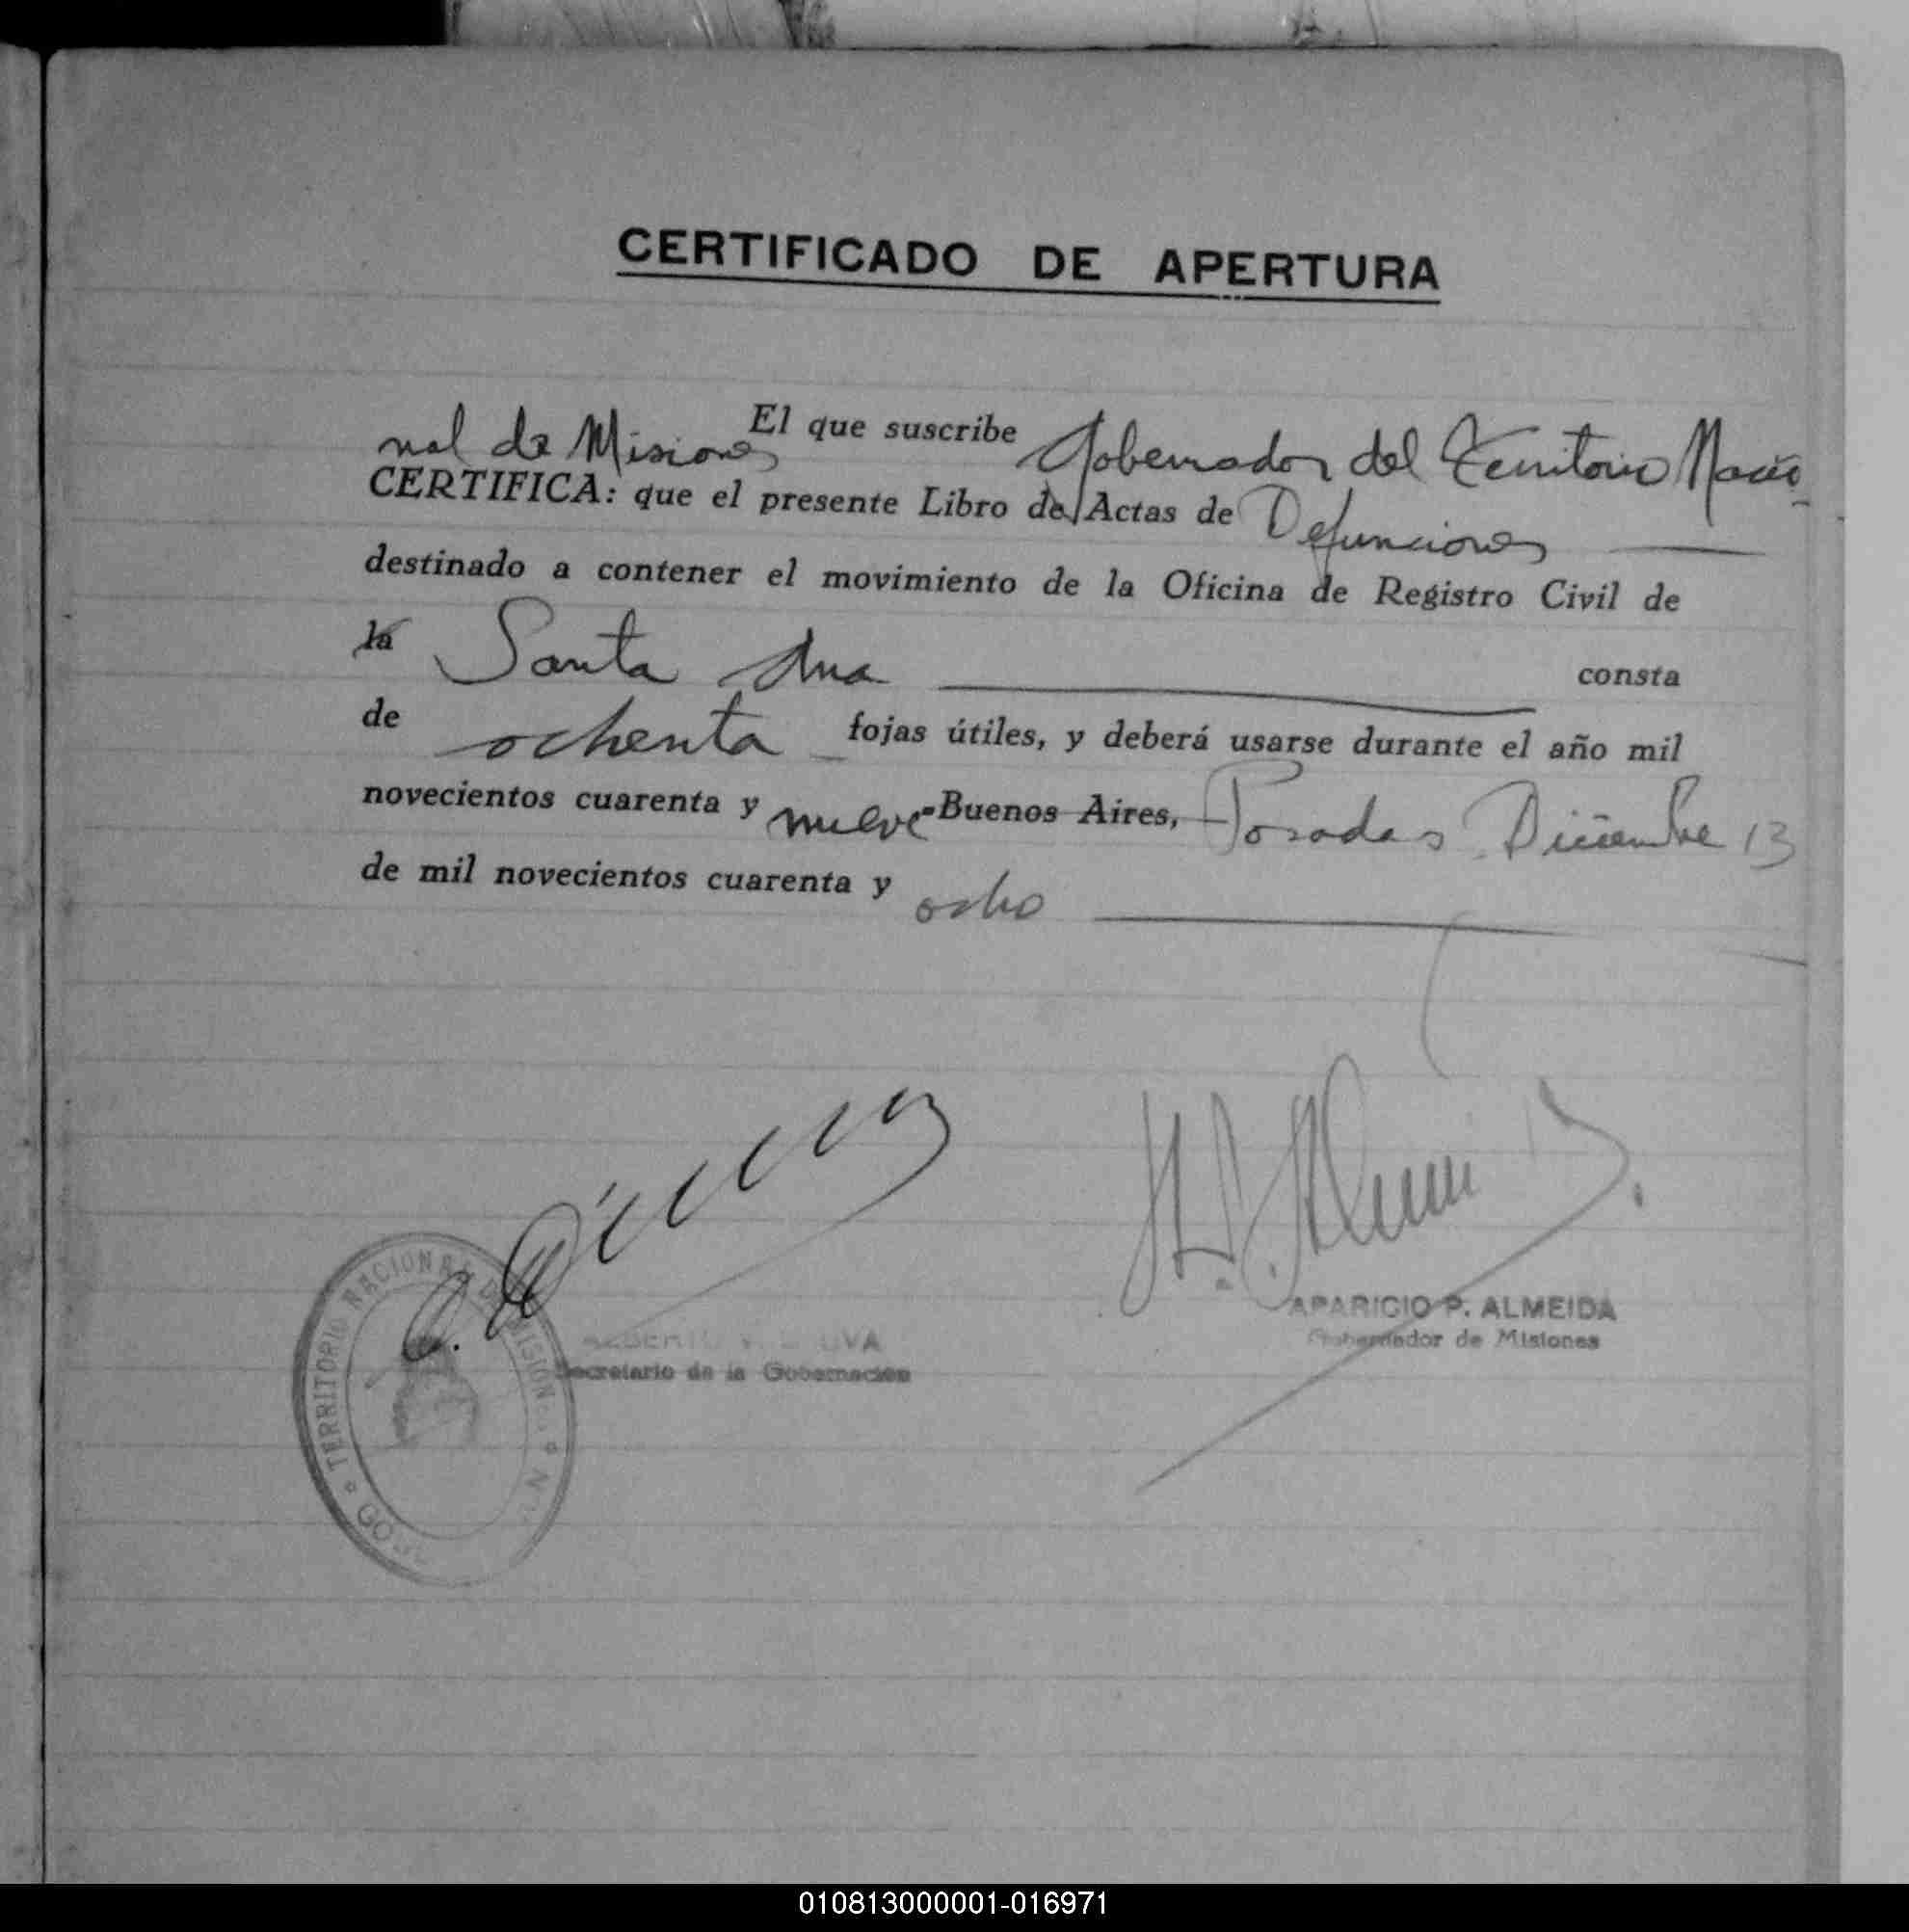 CERTIFICADO DE APERTURA
El que suscribe Gobernador del Territorio Nacio-
nal de Misiones
CERTIFICA: que el presente Libro de Actas de Defunciones
destinado a contener el movimiento de la Oficina de Registro Civil de
la Santa Ana consta
de ochenta fojas útiles, y deberá usarse durante el año mil
novecientos cuarenta y nueve Buenos Aires, Posadas Diciembre 13
de mil novecientos cuarenta y ocho
APARICIO P. ALMEIDA
Gobernador de Misiones
Secretario de la Gobernación
TERRITORIO NACIONAL DE MISIONES
010813000001-016971